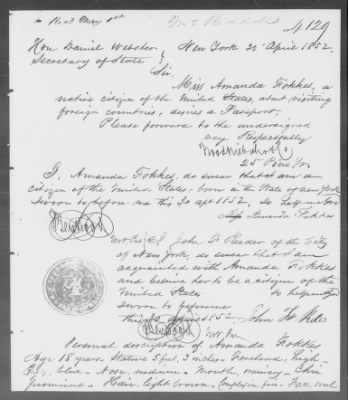 Recd May 1st
4129
Hon Daniel Webster New York 30 April 1852.
Secretary of State
Sir.
Miss Amanda Fokkes, a
native citizen of the United States, about visiting
foreign countries, desires a Passport.
Please forward to the undersigned
very Respectfully
25 Pine
I, Amanda Fokkes, do swear that I am a
citizen of the United States, born in the State of New York
Sworn to before me this 30 apl 1852. So help me God
Amanda Fokkes
I John F. of the City
of New York, do swear that I am
acquainted with Amanda Fokkes
and believe her to be a citizen of the
United States So help me God
Sworn to before me
this 30 April 1852 John
Personal description of Amanda Fokkes
Age 18 years. Stature 5 feet, 3 inches. Forehead, high-
Eyes, blue. Nose, medium. Mouth, ordinary. Chin
prominent. Hair, light brown. Complexion, fair. Face, oval